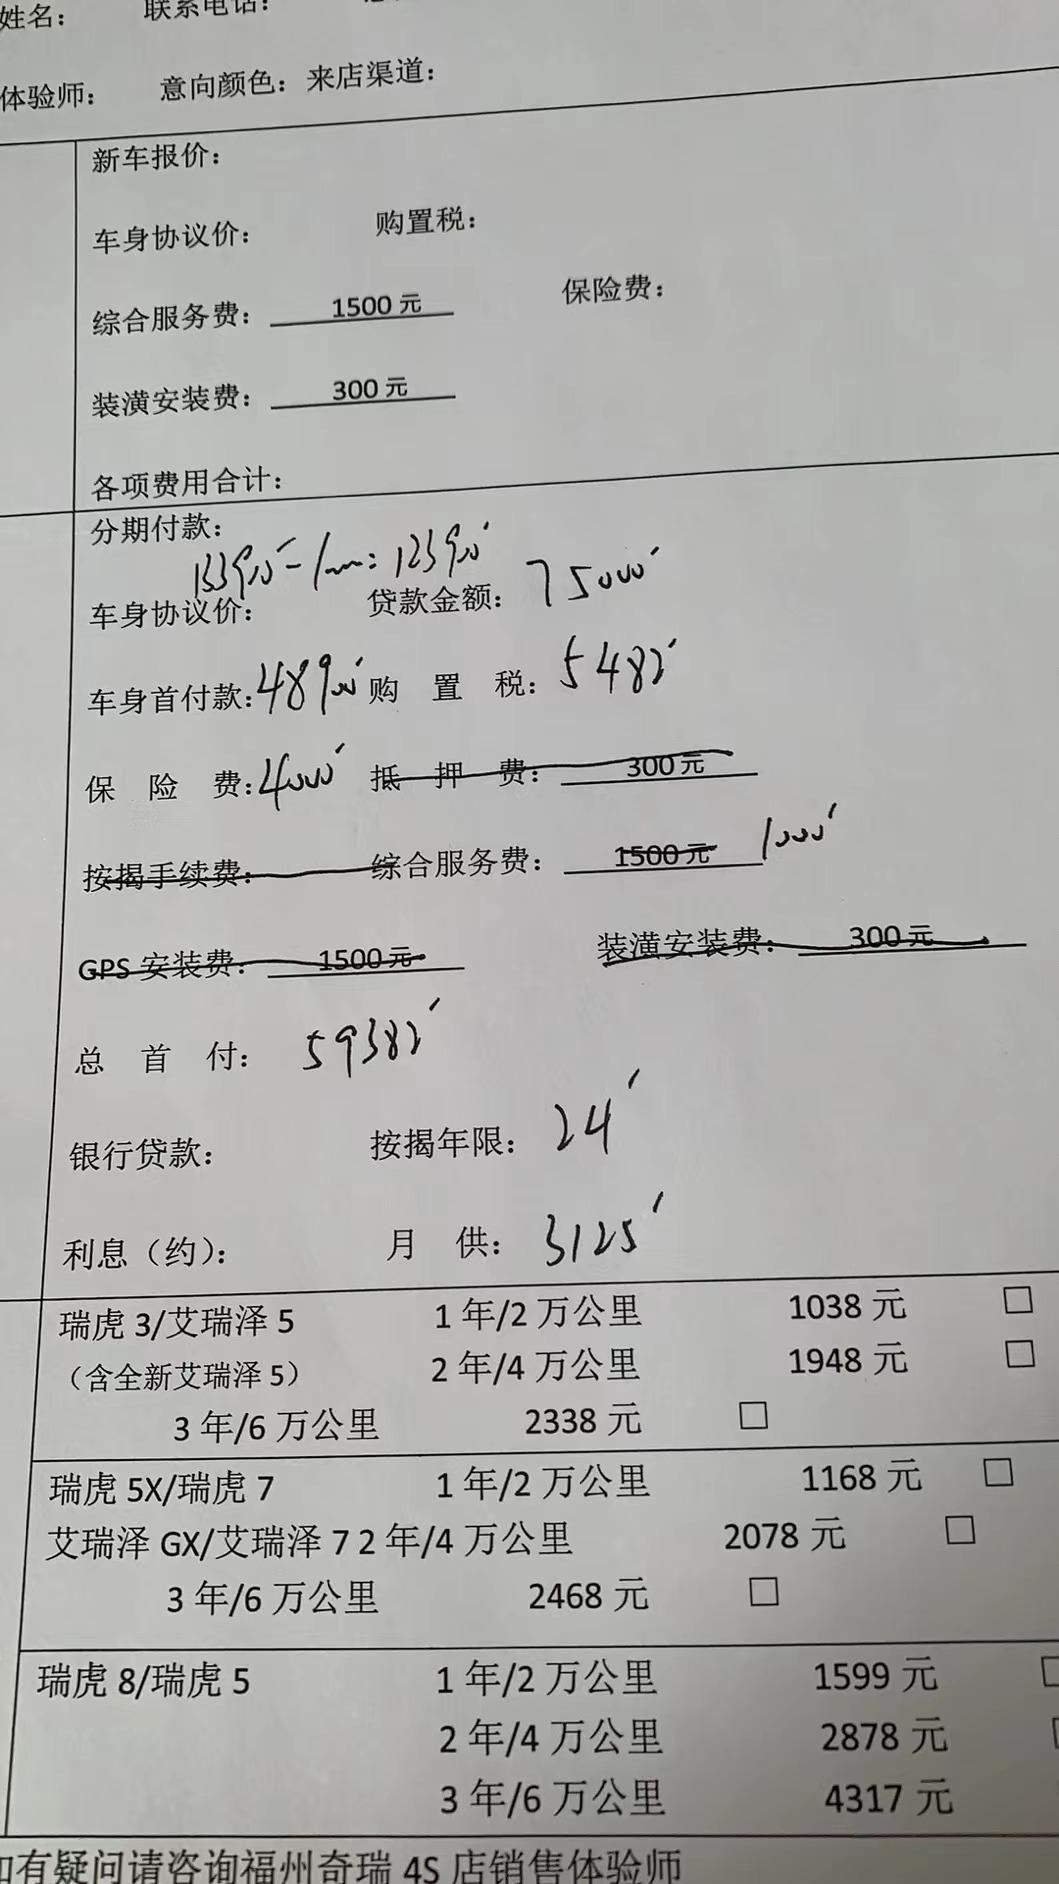 姓名： 联系电话：
体验师： 意向颜色：来店渠道：
新车报价：
车身协议价： 购置税：
综合服务费： 1500 元 保险费：
装潢安装费： 300 元
各项费用合计：
分期付款：
133900-10000=123900
车身协议价： 贷款金额：75000
车身首付款：48900 购 置 税：5482
保 险 费：4000 抵 押 费： 300 元
按揭手续费： 综合服务费： 1500 元 1000
GPS 安装费： 1500 元 装潢安装费： 300 元
总 首 付： 59382
银行贷款： 按揭年限：24
利息（约）： 月 供：3125
瑞虎 3/艾瑞泽 5 1 年/2 万公里 1038 元 □
（含全新艾瑞泽 5） 2 年/4 万公里 1948 元 □
3 年/6 万公里 2338 元 □
瑞虎 5X/瑞虎 7 1 年/2 万公里 1168 元 □
艾瑞泽 GX/艾瑞泽 7 2 年/4 万公里 2078 元 □
3 年/6 万公里 2468 元 □
瑞虎 8/瑞虎 5 1 年/2 万公里 1599 元 □
2 年/4 万公里 2878 元 □
3 年/6 万公里 4317 元
如有疑问请咨询福州奇瑞 4S 店销售体验师